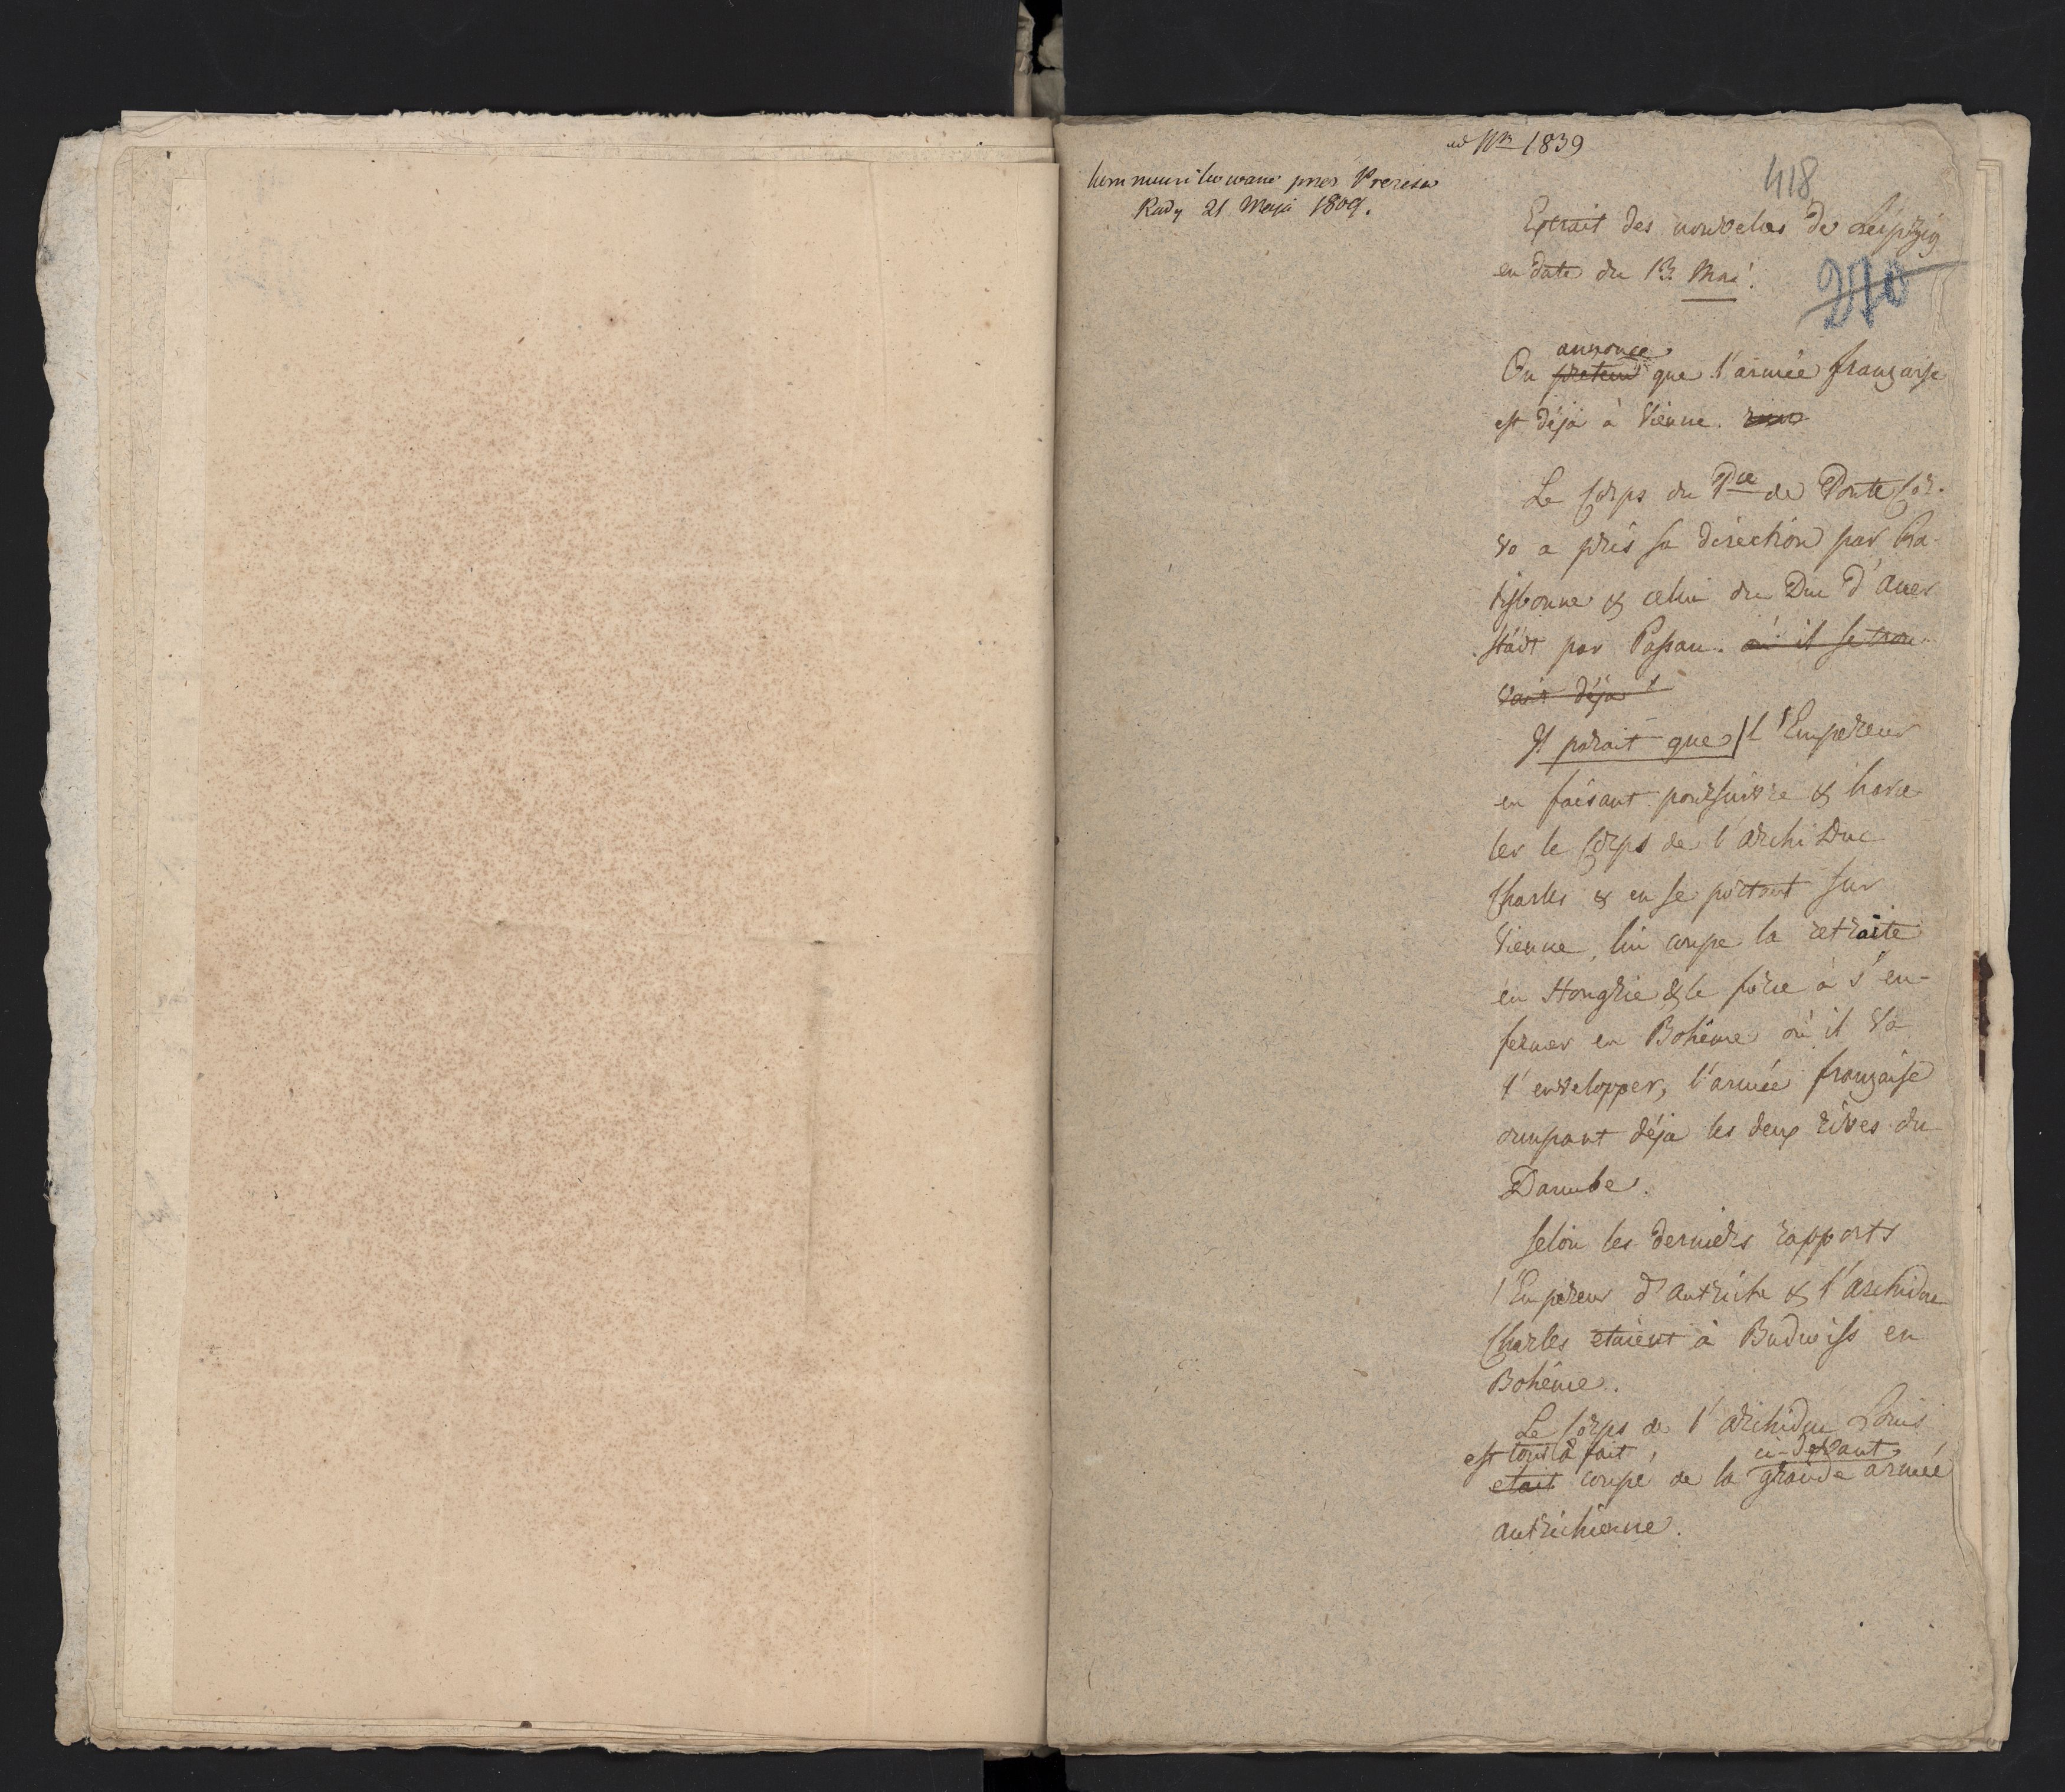 ad Nr 1839
kommunikowane przez Prezesa
Rady 21 Maja 1809.
418
Extrait des nouvelles de Leipzig
en date du 13. Mai.
270
annonce
On pretend que l'armée française
est déja à Vienne.
Le Corps du Pce de Ponte Cor-
vo a pris sa direction par Ra-
tisbonne & celui du Duc d'Auer
städt par Passau. où il se trou-
vait déja
Il parait que l'Empereur
en faisant poursuivre & harce
ler le Corps de l'Archi Duc
Charles & en se portant sur
Vienne, lui coupe la retraite
en Hongrie & le force à s'en-
fermer en Bohême où il va
l'envelopper, l'armée française
occupant déja les deux rives du
Danube.
Selon les derniers rapports
l'Empereur d'Autriche & l'Archiduc
Charles etaient à Budweiss en
Bohême.
Le Corps de l'Archiduc Louis
est tout à fait ci-devant
etait coupé de la grande armée
autrichienne.